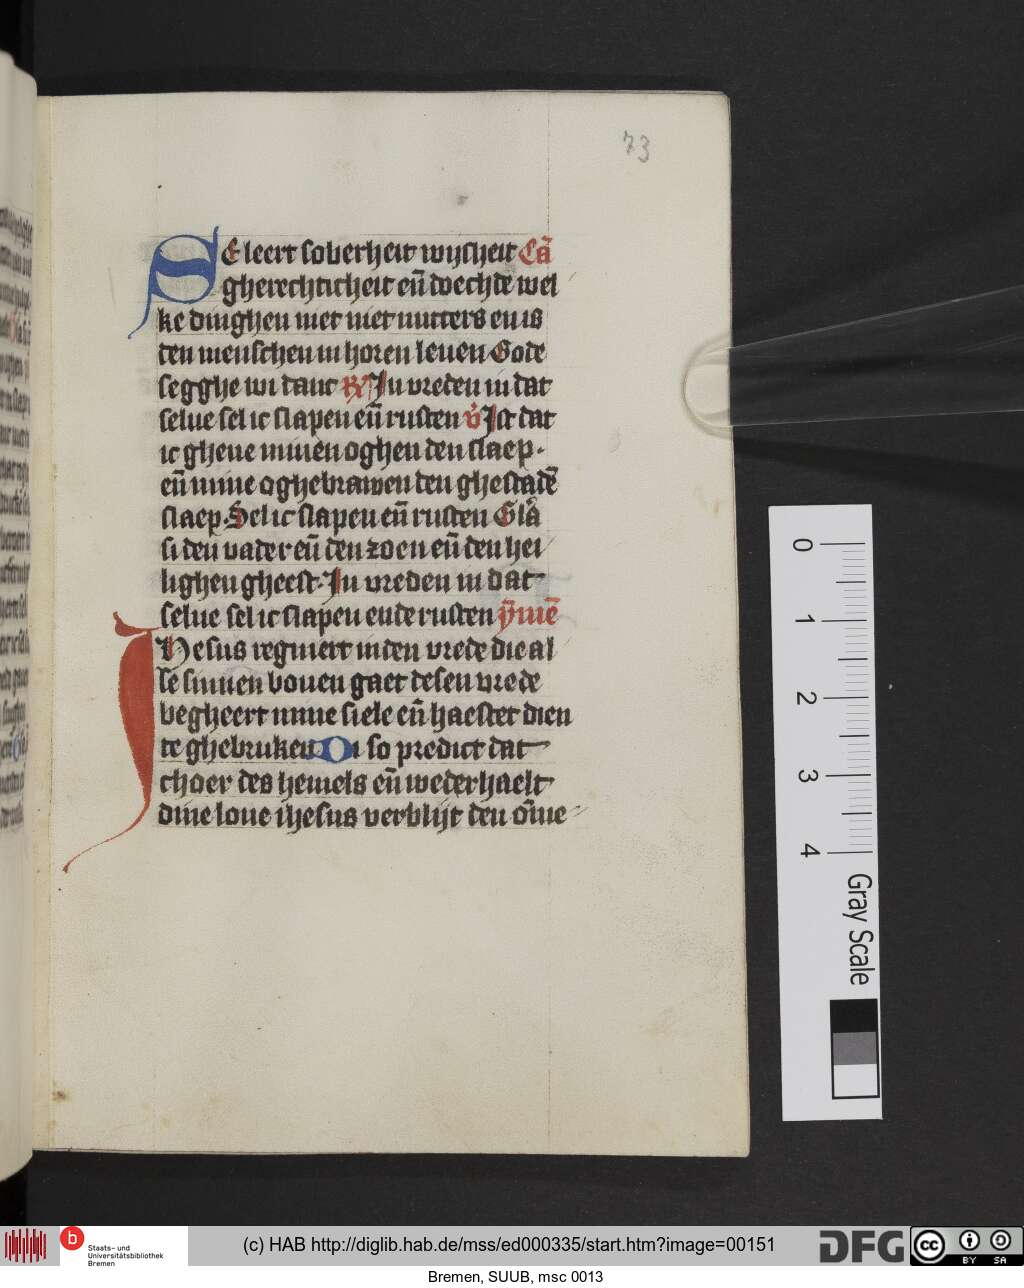 73
SE leert soberheit wijsheit Ca̅
gherechticheit en̅ doechde wel
ke dinghen niet niet nutters en is
den menschen in horen leuen Gode
segghe wi danc R In vreden in dat
selue sel ic slapen en̅ rusten v̉ Ist dat
ic gheue minen oghen den slaep.
en̅ mine oghebrawen den ghestade̅
slaep. Sel ic slapen en̅ rusten Gl̉a̅
si den vader en̅ den zoen en̅ den hei
lighen gheest. In vreden in dat
selue sel ic slapen ende rusten ẏme̅
Ihesus regniert in den vrede die al
le sinnen bouen gaet desen vrede
begheert mine siele en̅ haestet dien
te ghebruken Di so predict dat
choer des hemels en̅ wederhaelt
dine loue ihesus verblijt den o̅me
0
1
2
3
4
Gray Scale
b Staats- und
Universitätsbibliothek
Bremen
(c) HAB http://diglib.hab.de/mss/ed000335/start.htm?image=00151
DFG
cc BY SA
Bremen, SUUB, msc 0013